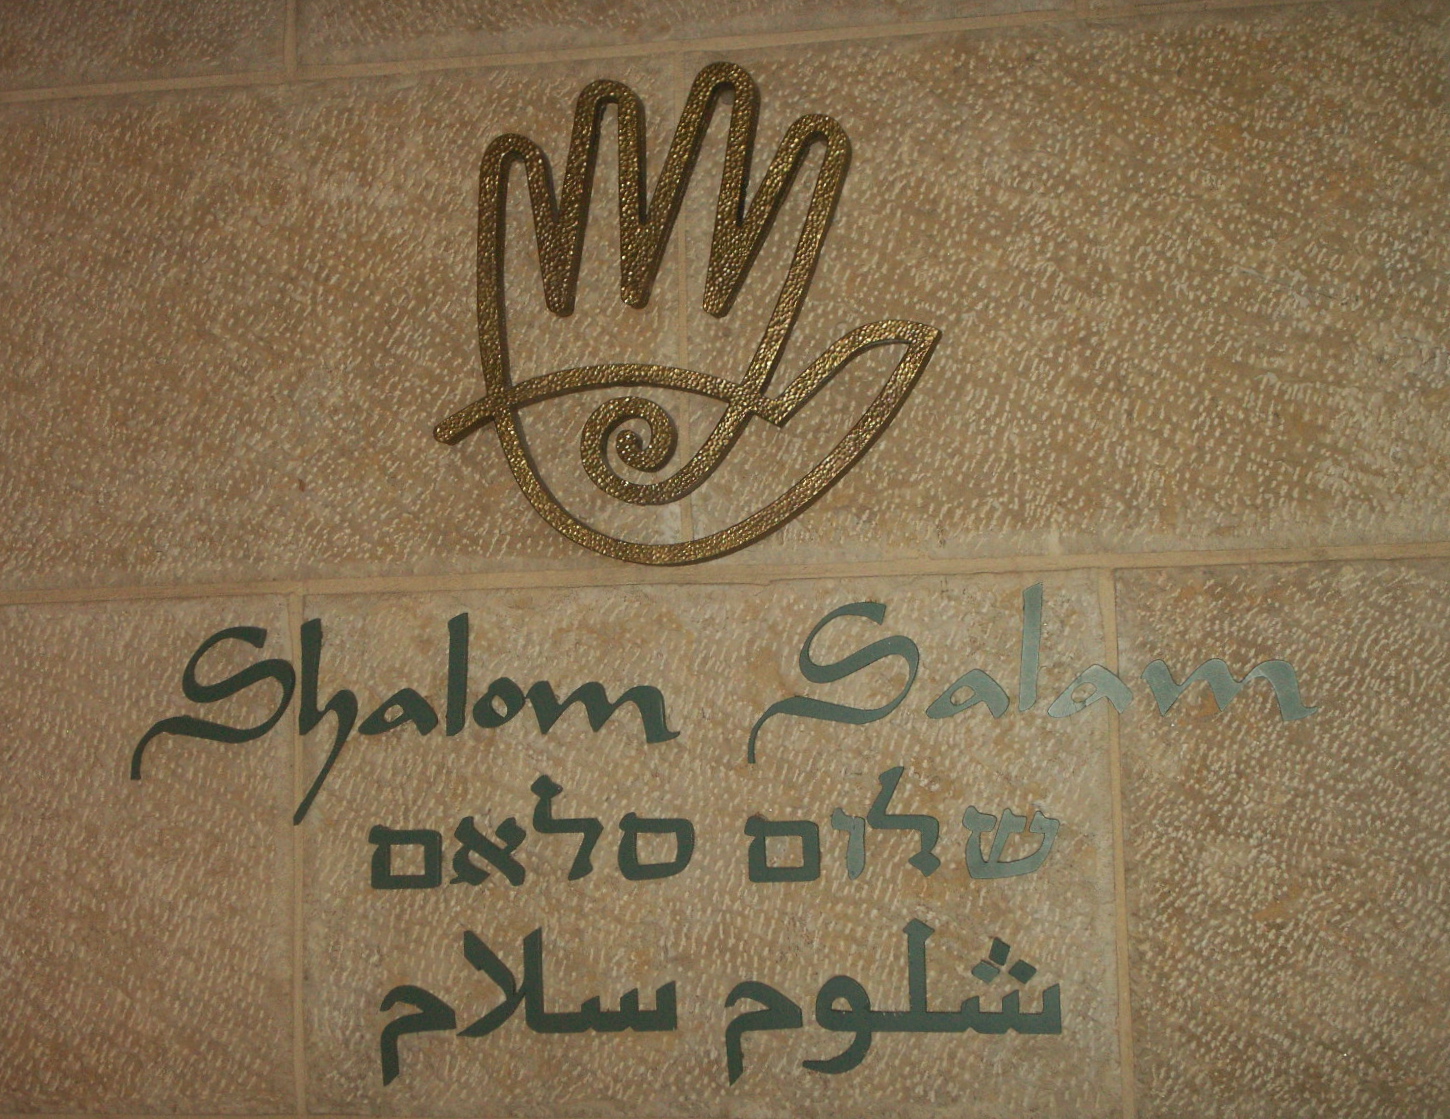 Shalom Salam
שלום סלאם
شلوم سلام